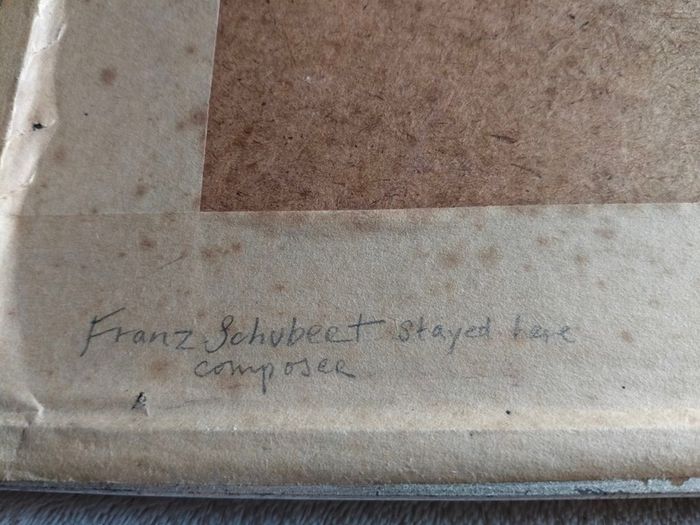 Franz Schubert stayed here
composer